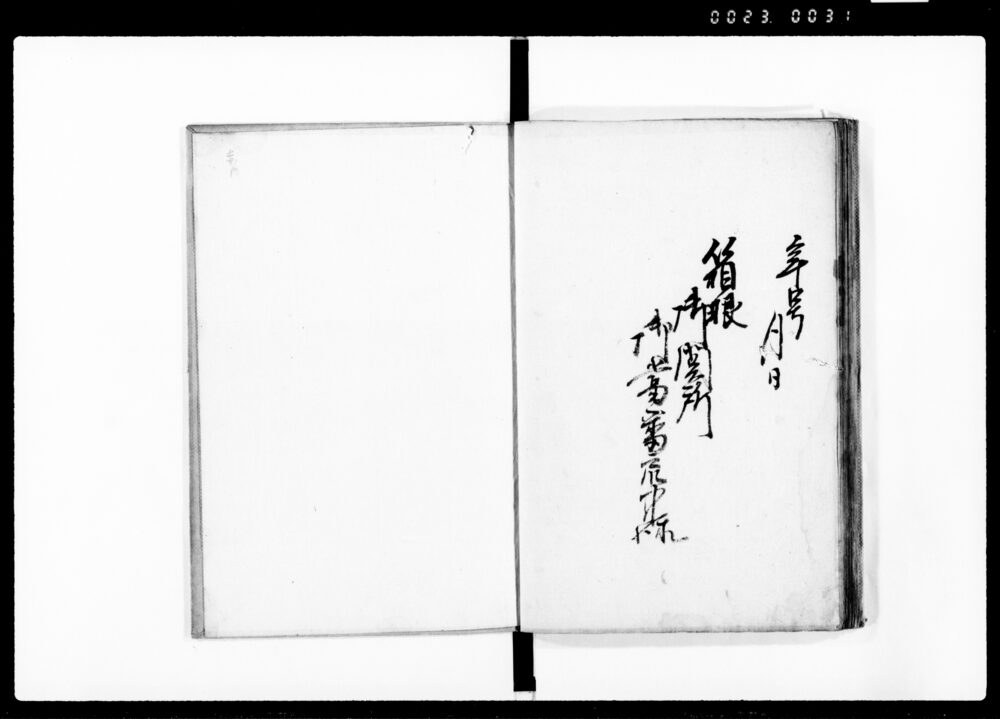 0023. 0031
年号
月日
箱根
御関所
御当番衆中様